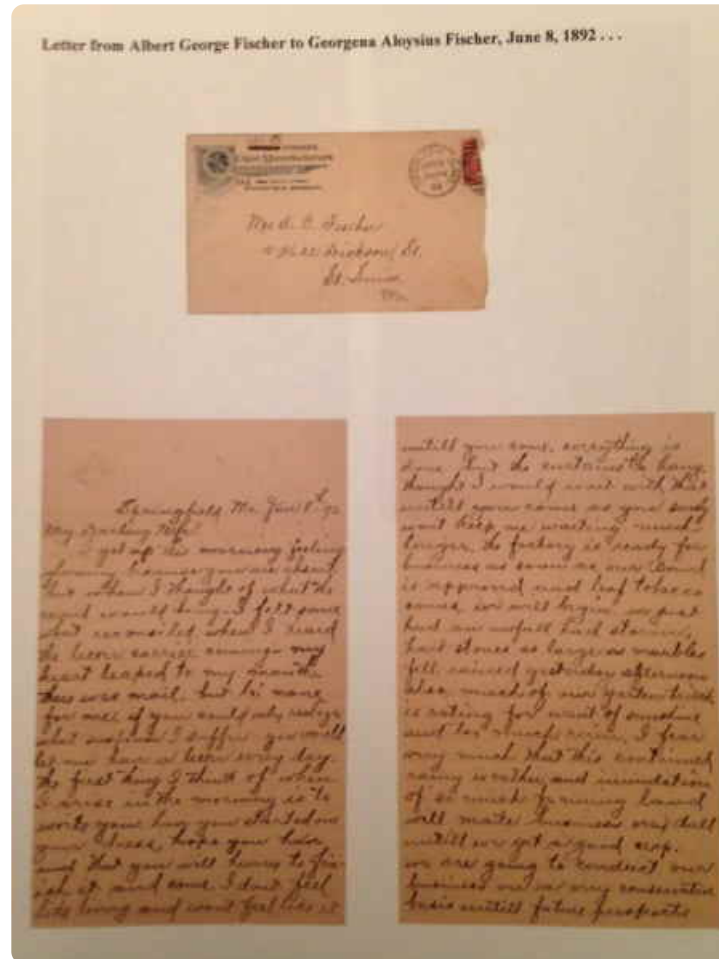 Letter from Albert George Fischer to Georgena Aloysius Fischer, June 8, 1892 . . .
Cigar Manufacturers
Mrs A. G. Fischer
Dickson St.
St. Louis
Mo.
Springfield Mo. June 8th 92
My Darling Wife
I got up this morning feeling
because you are absent
but when I thought of what the
would bring I felt some
what reconciled, when I heard
the letter carrier coming my
heart leaped to my mouth
there was mail, but no none
for me, if you could only realize
what I suffer you will
let me have a letter every day
the first thing I think of when
I arise in the morning is to
write you, have you started on
your dress, hope you have
and that you will hurry to fin-
ish it and come I don't feel
like living and wont feel like it
untill you come, everything is
done but the curtains to hang
thought I would wait with that
untill you come as you surely
wont keep me waiting much
longer, the factory is ready for
business as soon as our bond
is approved and leaf tobacco
comes, we will begin, we just
had an awfull hail storm,
hail stones as large as marbles
fell, rained yesterday afternoon
also, much of our garden truck
is rotting for want of sunshine
and too much rain, I fear
very much that this continued
rainy weather and inundation
of so much farming land
will make business very dull
untill we get a good crop.
we are going to conduct our
business on a very conservative
basis untill future prospects